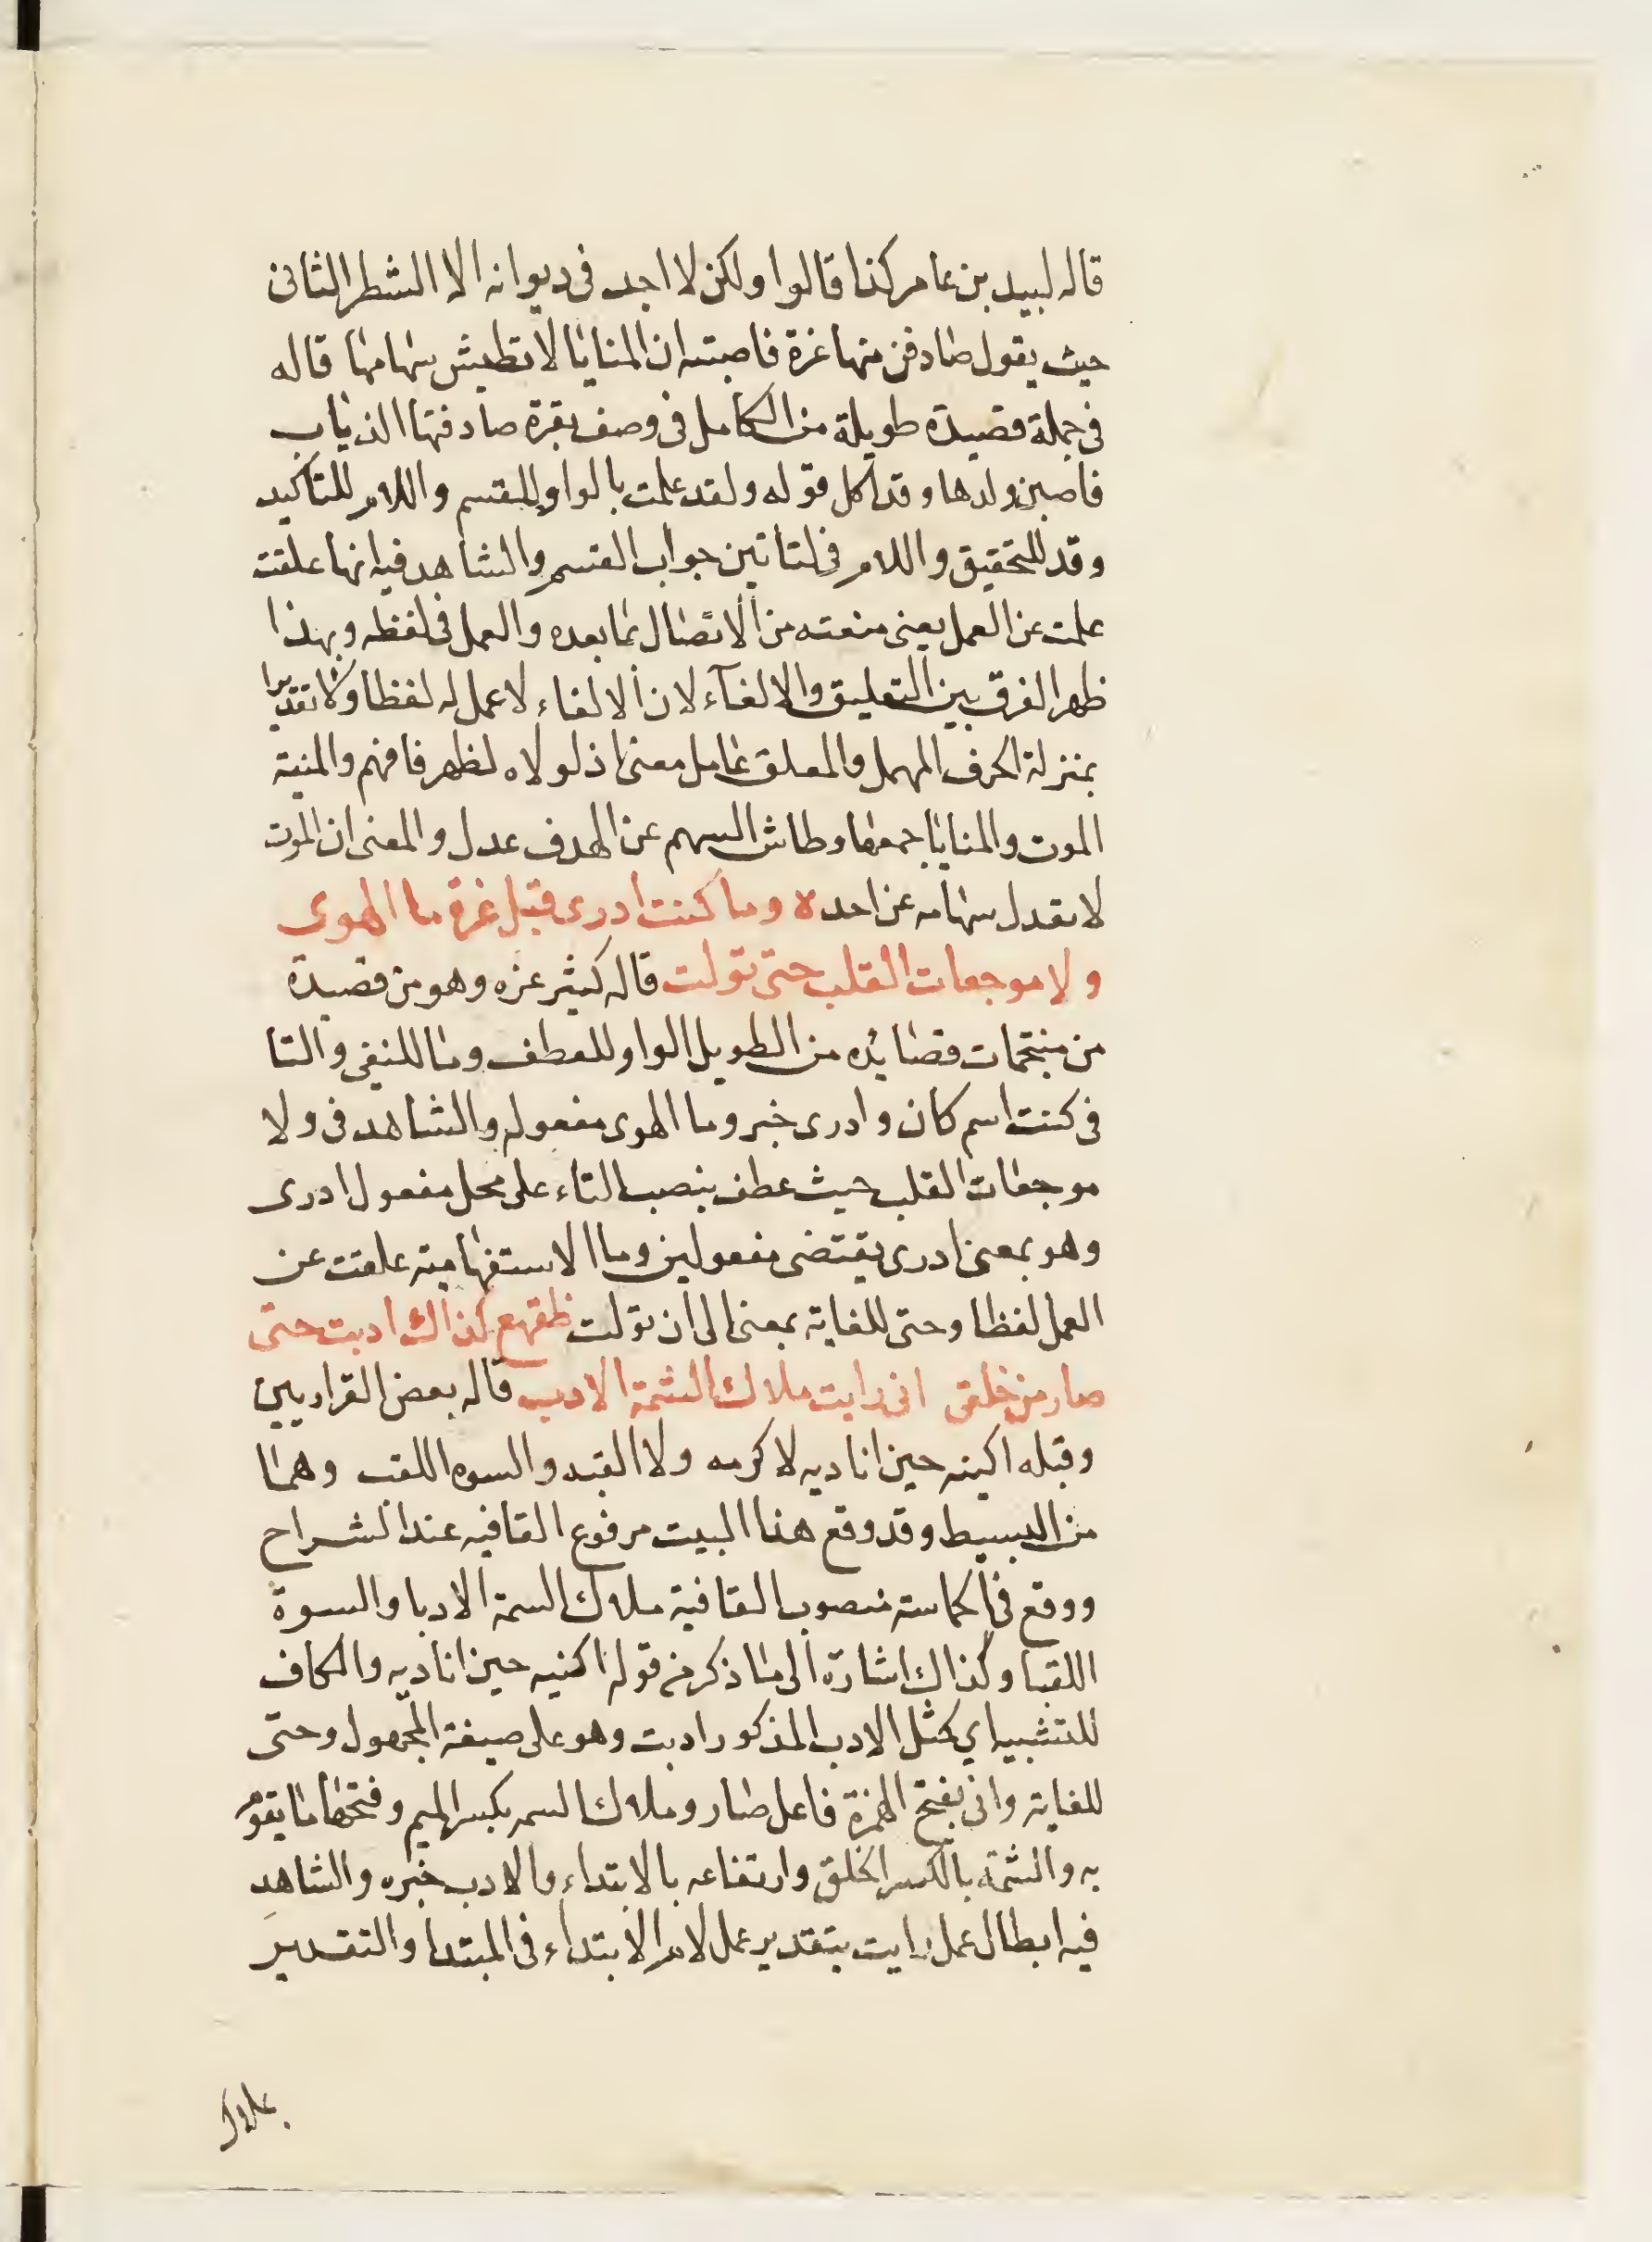 قاله لبيد بن عامر كذا قالوا ولكن لا اجد فى ديوانه الا الشطر الثانى
حيث يقول صادفن منها غرة فاصبنه ان المنايا لا تطيش سهامها قاله
فى جملة قصيدة طويلة من الكامل فى وصف بقرة صادفتها الذياب
فاصبن ولدها وقد اكل قوله ولقد علمت بالواو للقسم واللام للتاكيد
وقد للتحقيق واللام فى لتاتين جواب القسم والشاهد فيه انها علقت
علمت عن العمل يعنى منعته من الاتصال بما بعده والعمل فى لفظه وبهذا
ظهر الفرق بين التعليق والالغآء لان الالغاء لا عمل له لفظا ولا تقديرا
بمنزلة الحرف المهمل والمعلق عامل معنى اذ لولاه لظهر فافهم والمنية
الموت والمنايا جمعها وطاش السهم عن الهدف عدل والمعنى ان الموت
لا تعدل سهامه عن احد ه وما كنت ادرى قبل غرة ما الهوى
ولا موجعات القلب حتى تولت قاله كثير عزه وهو من قصيدة
من منتخبات قصائده من الطويل الواو للعطف وما للنفى والتا
فى كنت اسم كان وادرى خبر وما الهوى مفعوله والشاهد فى ولا
موجعات القلب حيث عطف بنصب التاء على محل مفعول ادرى
وهو بمعنى ادرى يقتضى مفعولين وما الاستفهامية علقت عن
العمل لفظا وحتى للغاية بمعنى الى ان تولت ظقهع كذاك ادبت حتى
صار من خلقى انى رايت ملاك الشمة الادب قاله بعض القراريين
وقبله اكنيه حين اناديه لاكرمه ولا القبه والسوه اللقب وهما
من البسيط وقد وقع هذا البيت مرفوع القافيه عند الشراح
ووقع فى الحماسة منصوب القافية ملاك السمة الادبا والسوة
اللقبا وكذاك اشارة الى ما ذكر من قوله اكنيه حين اناديه والكاف
للتشبيه اي كمثل الادب المذكور ادبت وهو على صيغة المجهول وحتى
للغاية وانى بفتح الهمزة فاعل صار وملاك السمه بكسر الميم وفتحها ما يقوم
به والشمة بالكسر الخلق وارتفاعه بالابتداء والادب خبره والشاهد
فيه ابطال عمل رايت بتقدير عمل لام الابتداء فى المبتدا والتقدير